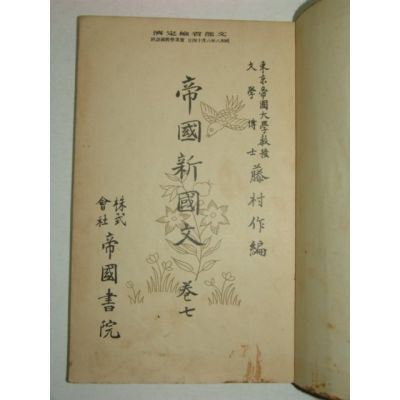 文部省檢定濟
東京帝國大學教授
文學博士
藤村作編
帝國新國文 巻七
株式
會社
帝國書院